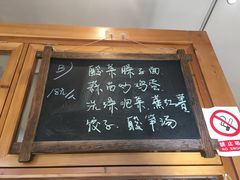 B)
18元/人
酸菜臊子面
蒜苗炒鸡蛋
洗澡泡菜.蒸红薯
饺子.酸笋汤
禁止吸
NO SMO